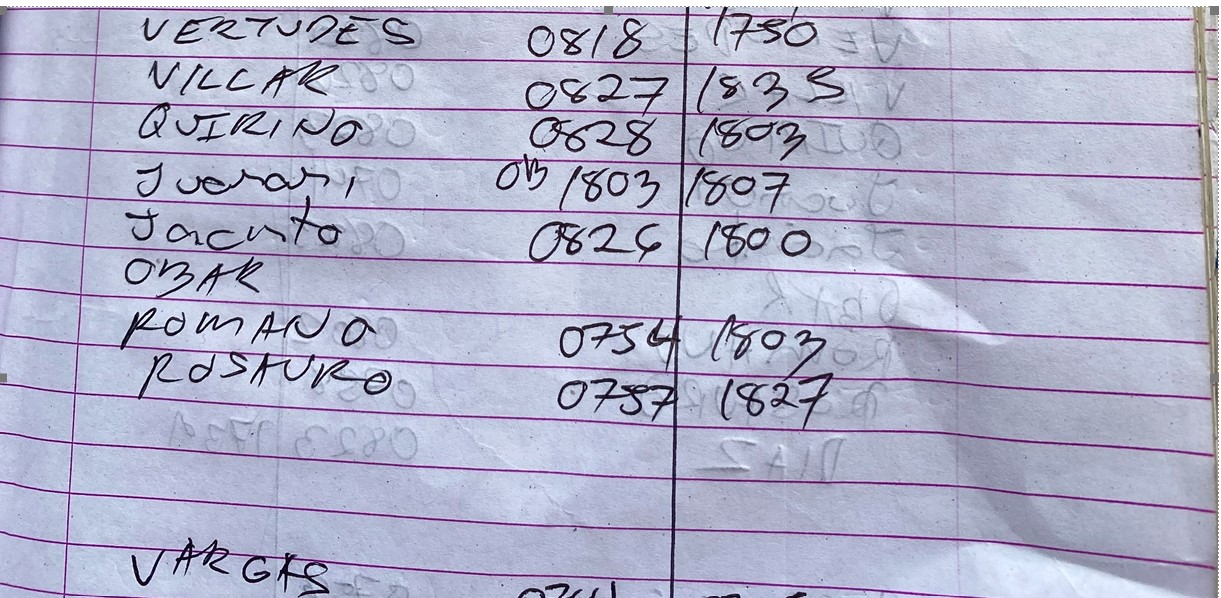 VERTUDES 0818 1750
VILLAR 0827 1835
QUIRINO 0828 1803
OB 1803 1807
Jacinto 0826 1800
OBAR
ROMANO 0754 1803
ROSAURO 0757 1827
VARGAS